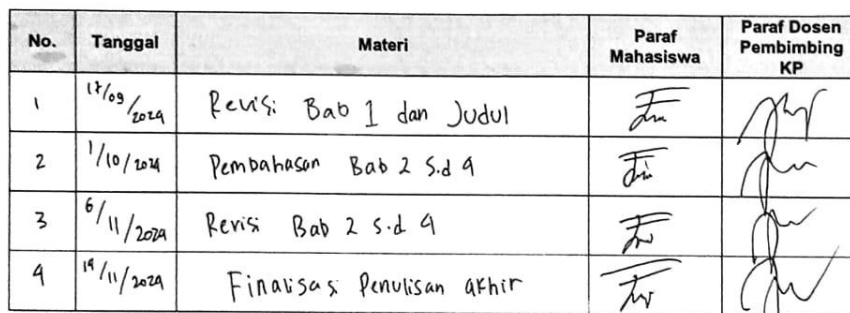 No. Tanggal Materi Paraf Mahasiswa Paraf Dosen Pembimbing KP
1 17/09/2024 Revisi Bab 1 dan Judul
2 1/10/2024 Pembahasan Bab 2 s.d 4
3 6/11/2024 Revisi Bab 2 s.d 4
4 19/11/2024 Finalisasi Penulisan akhir